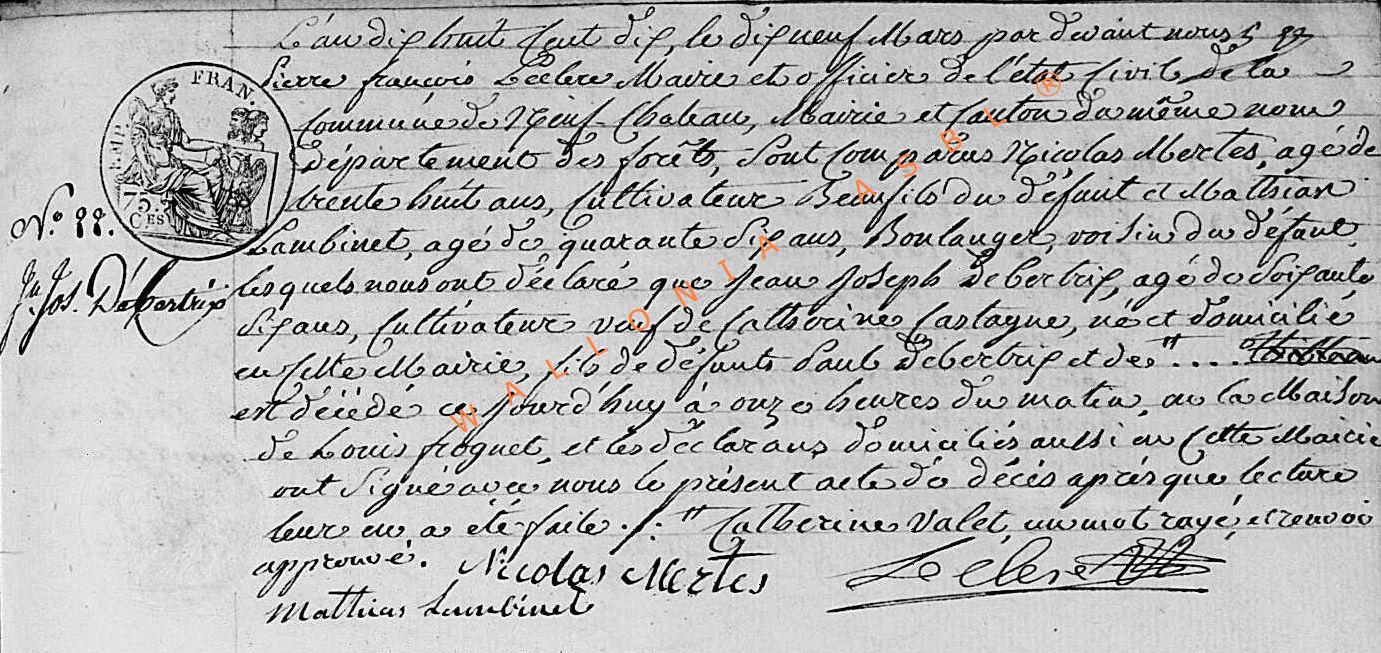 L'an dix huit cent dix, le dix neuf Mars par devant nous
Pierre françois Leclere Maire et officier de l'état Civil de la
FRAN.
EMP.
75
CES
Commune de Neuf Chateau, Mairie et Canton du même nom
Département des forêts, Sont Comparus Nicolas Mertes, agé de
trente huit ans, Cultivateur Beaufils du défunt et Mathias
N.º 22.
Lambinet, agé de quarante Six ans, Boulanger, voisin du défunt,
Jn. Jos. Débertrix
lesquels nous ont déclaré que Jean Joseph Debertrix, agé de Soixante
Six ans, Cultivateur veuf de Catherine Castagne, né et domicilié
en cette Mairie, fils de défunts Paul Debertrix et de " ....
est décédé ce jourd'huy à onze heures du matin, en la Maison
de Louis froguet, et les déclarans domiciliés aussi en Cette Mairie
ont Signé avec nous le présent acte de décès après que lecture
leur en a été faite ./. " Catherine Valet, un mot rayé, et renvoi
approuvé. Nicolas Mertes Leclere
Mathias Lambinet
WALLONIA ASBL ®